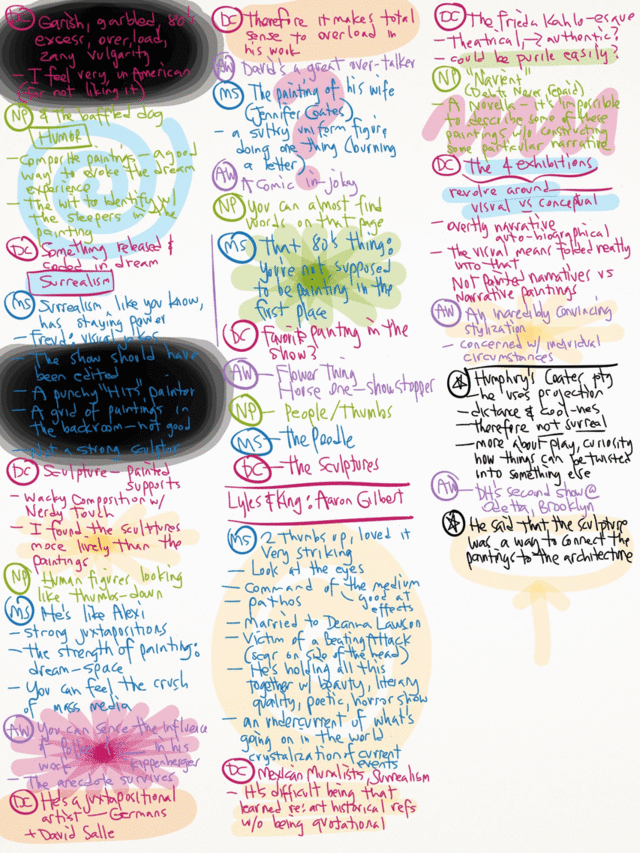 DC Garish, garbled, 80's
excess, overload,
zany vulgarity
- I feel very, unAmerican
for not liking it)
NP & the baffled dog
HUMOR
- Composite paintings - a good
way to evoke the dream
experience
- The wit to identity w/
the sleepers in the
painting
DC Something released &
coded in dream
Surrealism
MS Surrealism, like you know,
has staying power
- Freud: visual jokes
- The show should have
been edited
- A punchy "HITS" painter
- A grid of paintings in
the backroom - not good
- Not a strong sculptor
DC Sculpture - painted
supports
- Wacky Composition w/
Nerdy Touch
- I found the sculptures
more lively than the
paintings
NP Human figures looking
like thumbs-down
MS He's like Alexi
- strong juxtapositions
- the strength of painting:
dream-space
- You can feel the crush
of mass media
AW You can sense the influence
of in his
work Kippenberger
- The anecdote survives
DC He's a juxtapositional
artist - Germans
+ David Salle
DC Therefore it makes total
sense to overload in
his work
AW David's a great over-talker
MS The painting of his wife
(Jennifer Coates)
- a sultry uniform figure
doing one thing (burning
a letter)
AW A Comic in-joky
NP You can almost find
words on that page
MS That 80's thing:
You're not supposed
to be painting in the
first place
DC Favorite painting in the
show?
AW - Flower Thing
Horse one - showstopper
NP - People/Thumbs
MS - The Poodle
DC - the sculptures
Lyles & King: Aaron Gilbert
MS 2 thumbs up, loved it
Very striking
- Look at the eyes
- Command of the medium
- good at
effects
- pathos
- Married to Deanna Lawson
- Victim of a Beating Attack
(scar on side of the head)
- He's holding all this
together w/ beauty, literary
quality, poetic, horror show
- an undercurrent of what's
going on in the world
crystalization of current
events
DC Mexican Muralists, Surrealism
- It's difficult being that
learned re: art historical refs
w/o being quotational
DC The Frieda Kahlo-esque
- Theatrical, -> authentic?
- could be purile easily?
NP "Navent"
(Debts Never repaid)
- A Novella - it's impossible
to describe some of these
paintings w/o constructing
some particular narrative
DC The 4 exhibitions
revolve around
visual vs conceptual
- overtly narrative
auto-biographical
- The visual means folded neatly
into that
Not painted narratives vs
Narrative paintings
AW An incredibly convincing
stylization
- concerned w/ individual
circumstances
Humphry's Coates ptg
- he uses projection
- distance & cool-nes
- therefore not surreal
- more about play, curiosity
how things can be twisted
into something else
AW - DH's second show @
Odetta, Brooklyn
He said that the sculpture
was a way to connect the
paintings to the architecture